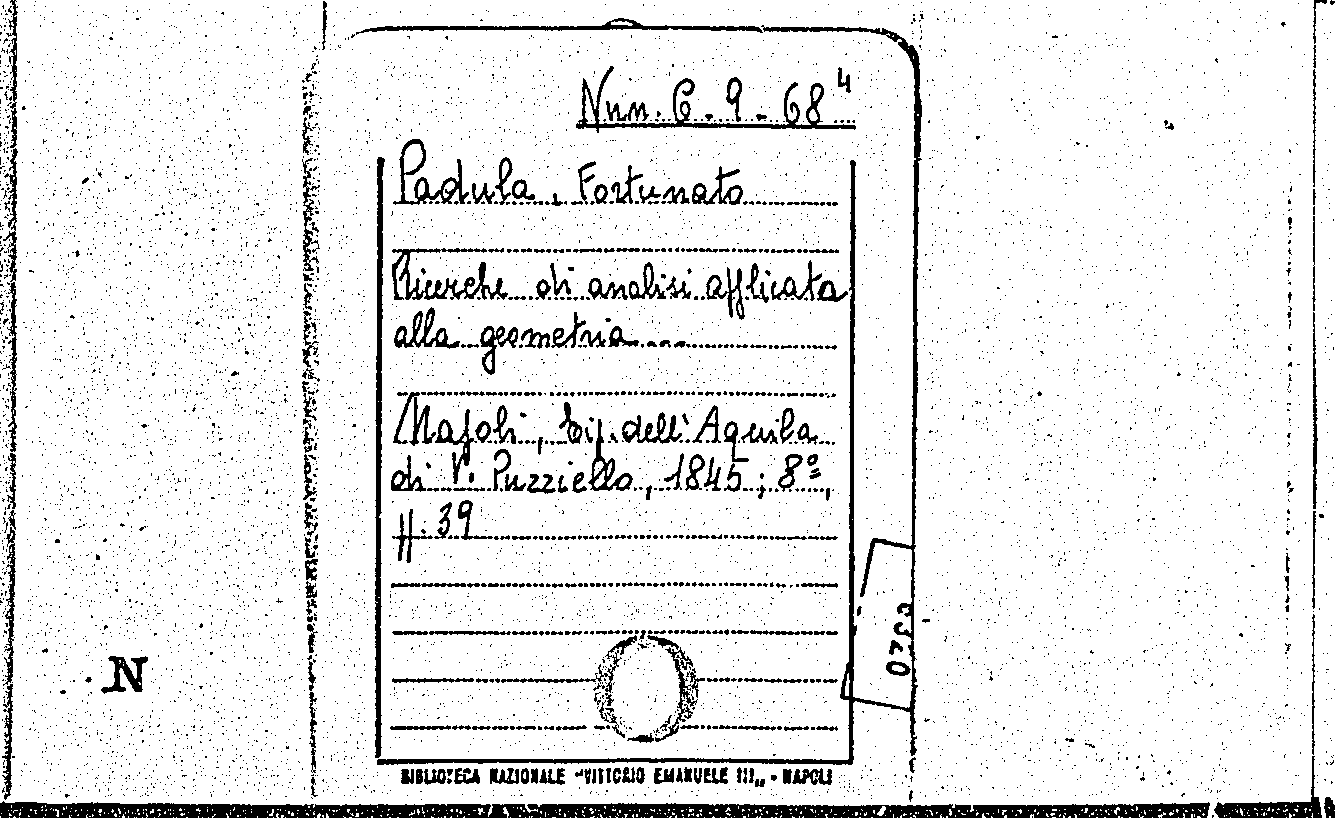 Nun. C. 9 - 68⁴
Padula, Fortunato
Ricerche di analisi applicata
alla geometria....
Napoli, tip. dell'Aquila
di V. Puzziello, 1845; 8º,
pp. 39
N
BIBLIOTECA NAZIONALE "VITTORIO EMANUELE III„ - NAPOLI